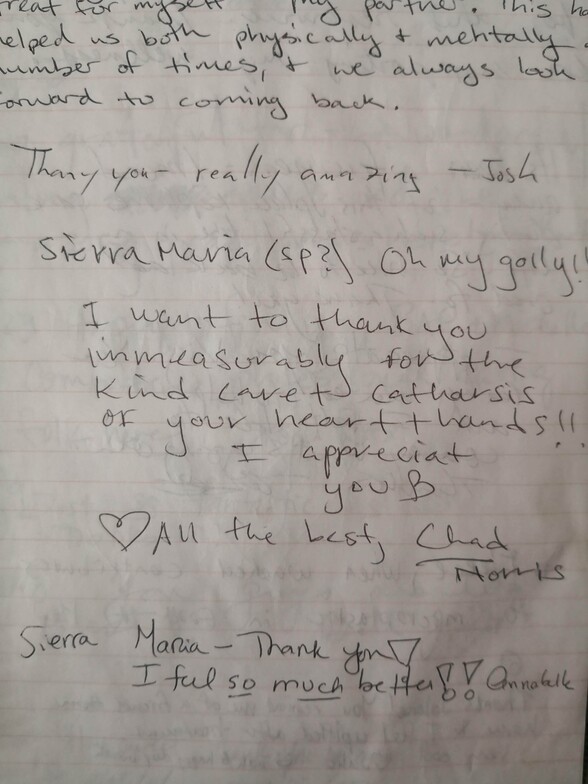 treat for myself my partner. This ha
helped us both physically + mentally a
number of times, + we always look
forward to coming back.
Thany you - really amazing - Josh
Sierra Maria (sp?) Oh my golly!!
I want to thank you
immeasurably for the
kind care + catharsis
of your heart + hands!!
I appreciat
you B
All the best, Chad
Norris
Sierra Maria - Thank you!
I ful so much better!! Annabelle